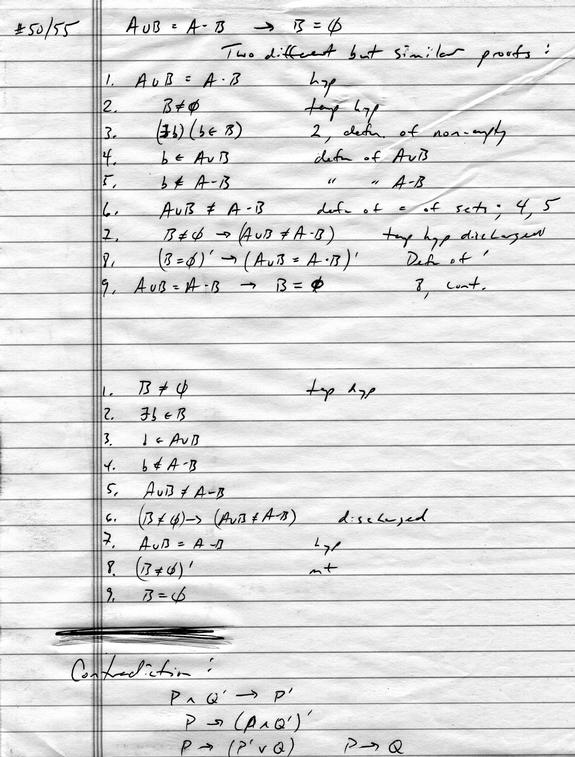 #50/55 A∪B = A-B → B = ϕ
Two different but similar proofs:
1. A∪B = A-B hyp
2. B≠ϕ temp hyp
3. (∃b)(b∈B) 2, defn. of non-empty
4. b ∈ A∪B defn of A∪B
5. b ∉ A-B " " A-B
6. A∪B ≠ A-B defn of = of sets; 4, 5
7. B≠ϕ → (A∪B ≠ A-B) temp hyp discharged
8. (B=ϕ)' → (A∪B = A-B)' Defn of '
9. A∪B = A-B → B = ϕ 8, cont.
1. B ≠ ϕ temp hyp
2. ∃b ∈ B
3. b ∈ A∪B
4. b ∉ A-B
5. A∪B ≠ A-B
6. (B≠ϕ) → (A∪B ≠ A-B) discharged
7. A∪B = A-B hyp
8. (B≠ϕ)' mt
9. B = ϕ
Contradiction:
P ∧ Q' → P'
P → (P∧Q')'
P → (P' ∨ Q) P → Q